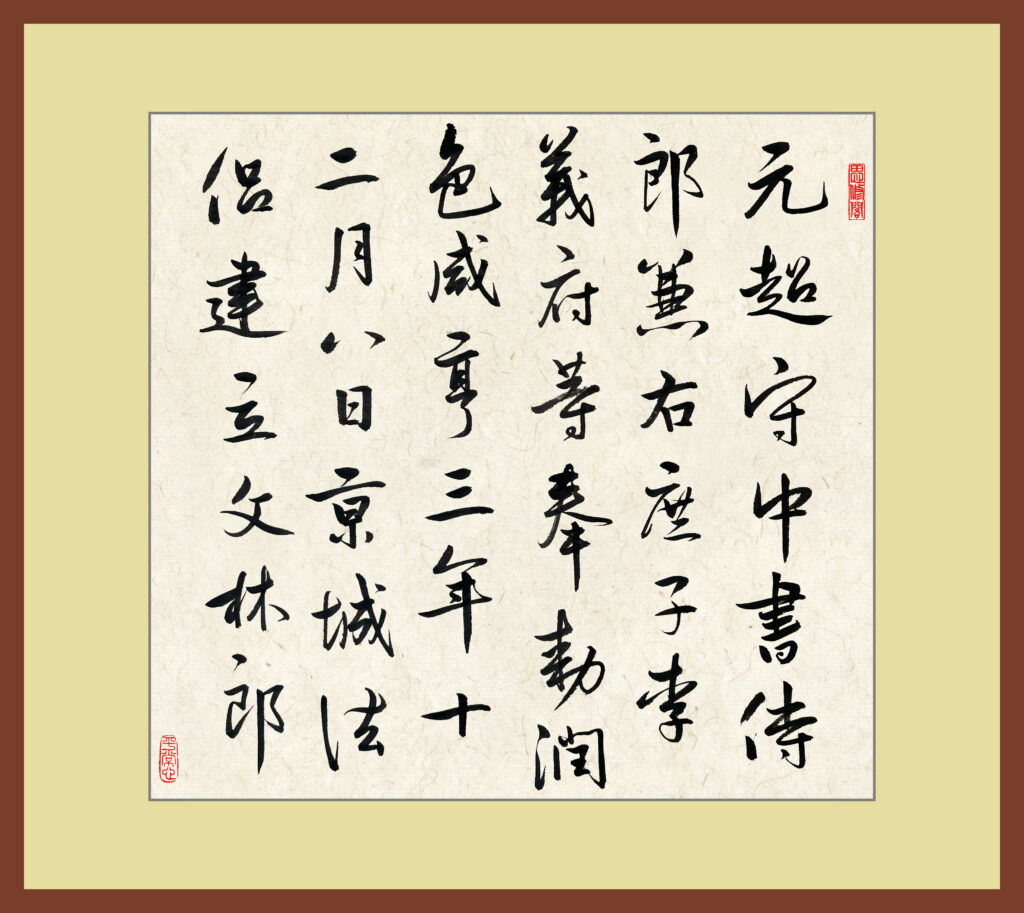 元超守中書侍
郎兼右庶子李
義府等奉勅潤
色咸亨三年十
二月八日京城法
侶建立文林郎